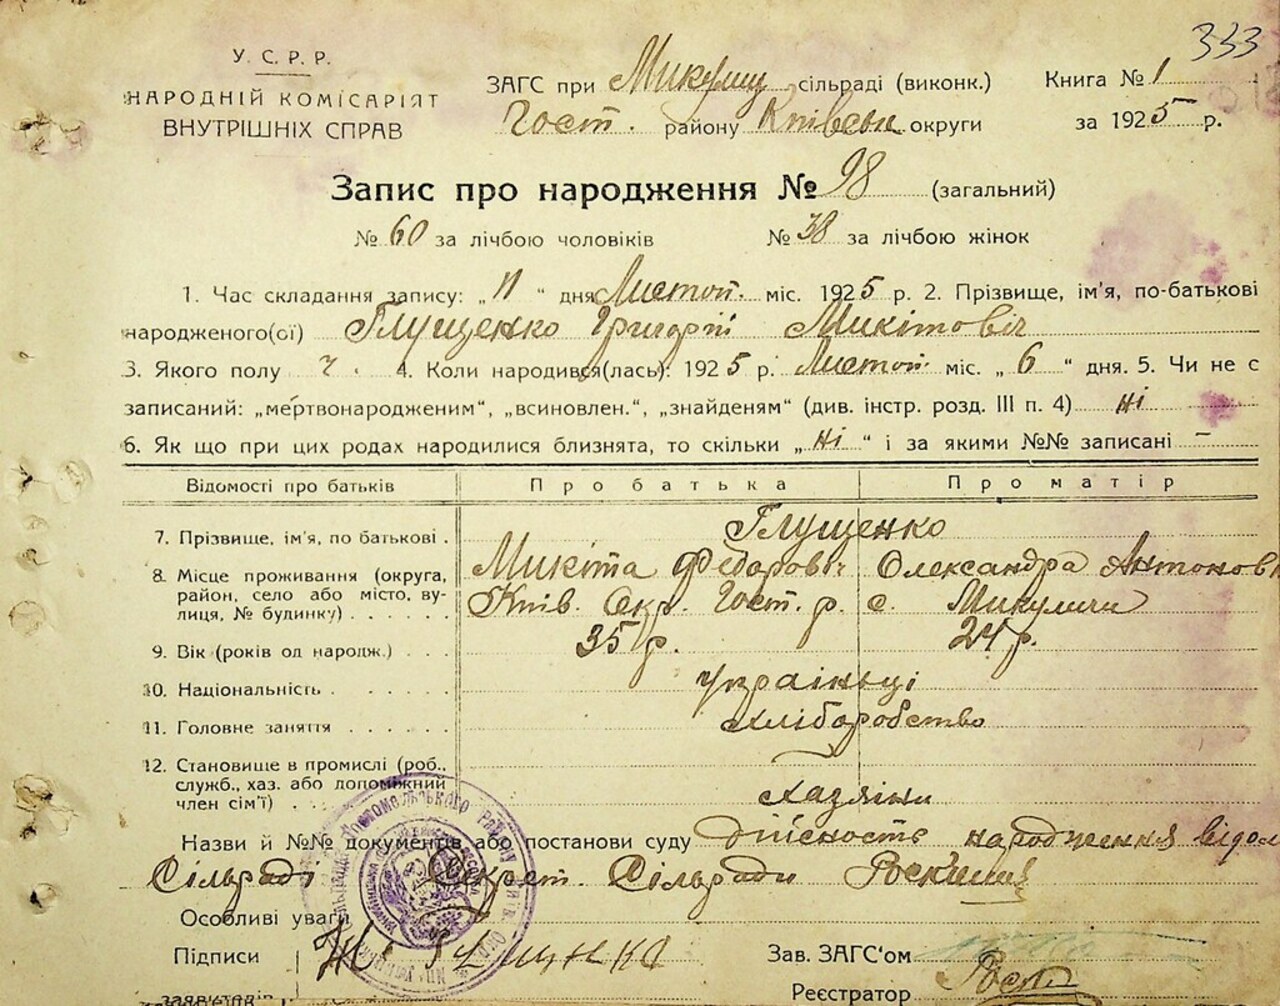 333
У. С. Р. Р.
НАРОДНІЙ КОМІСАРІЯТ
ВНУТРІШНІХ СПРАВ
ЗАГС при Микулиц сільраді (виконк.)
Гост. району Київськ. округи
Книга № 1
за 1925 р.
Запис про народження № 98 (загальний)
№ 60 за лічбою чоловіків № 38 за лічбою жінок
1. Час складання запису: „11“ дня Листоп. міс. 1925 р. 2. Прізвище, ім'я, по-батькові
народженого(ої) Глущенко Григорій Микітовіч
3. Якого полу ч. 4. Коли народився(лась): 1925 р. Листоп. міс. „6“ дня. 5. Чи не є
записаний: „мертвонародженим“, „всиновлен.“, „знайденям“ (див. інстр. розд. III п. 4) ні
6. Як що при цих родах народилися близнята, то скільки „ні“ і за якими №№ записані –
Відомості про батьків Про батька Про матір
7. Прізвище, ім'я, по батькові . Глущенко
Микіта Федоровіч Олександра Антонов
8. Місце проживання (округа,
район, село або місто, ву-
лиця, № будинку) . . . . . . Київ. Окр. Гост. р. с. Микуличи
9. Вік (років од народж.) . . . 35 р. 24 р.
10. Національність . . . . . . . україньці
11. Головне заняття . . . . . . хліборобство
12. Становище в промислі (роб.,
служб., хаз. або допоміжний
член сім'ї) . . . Хазяіни
Назви й №№ документів або постанови суду Дійсность народження відом
Сільраді Секрет. Сільради
Особливі уваги
Підписи
заявителів
Зав. ЗАГС'ом
Реєстратор